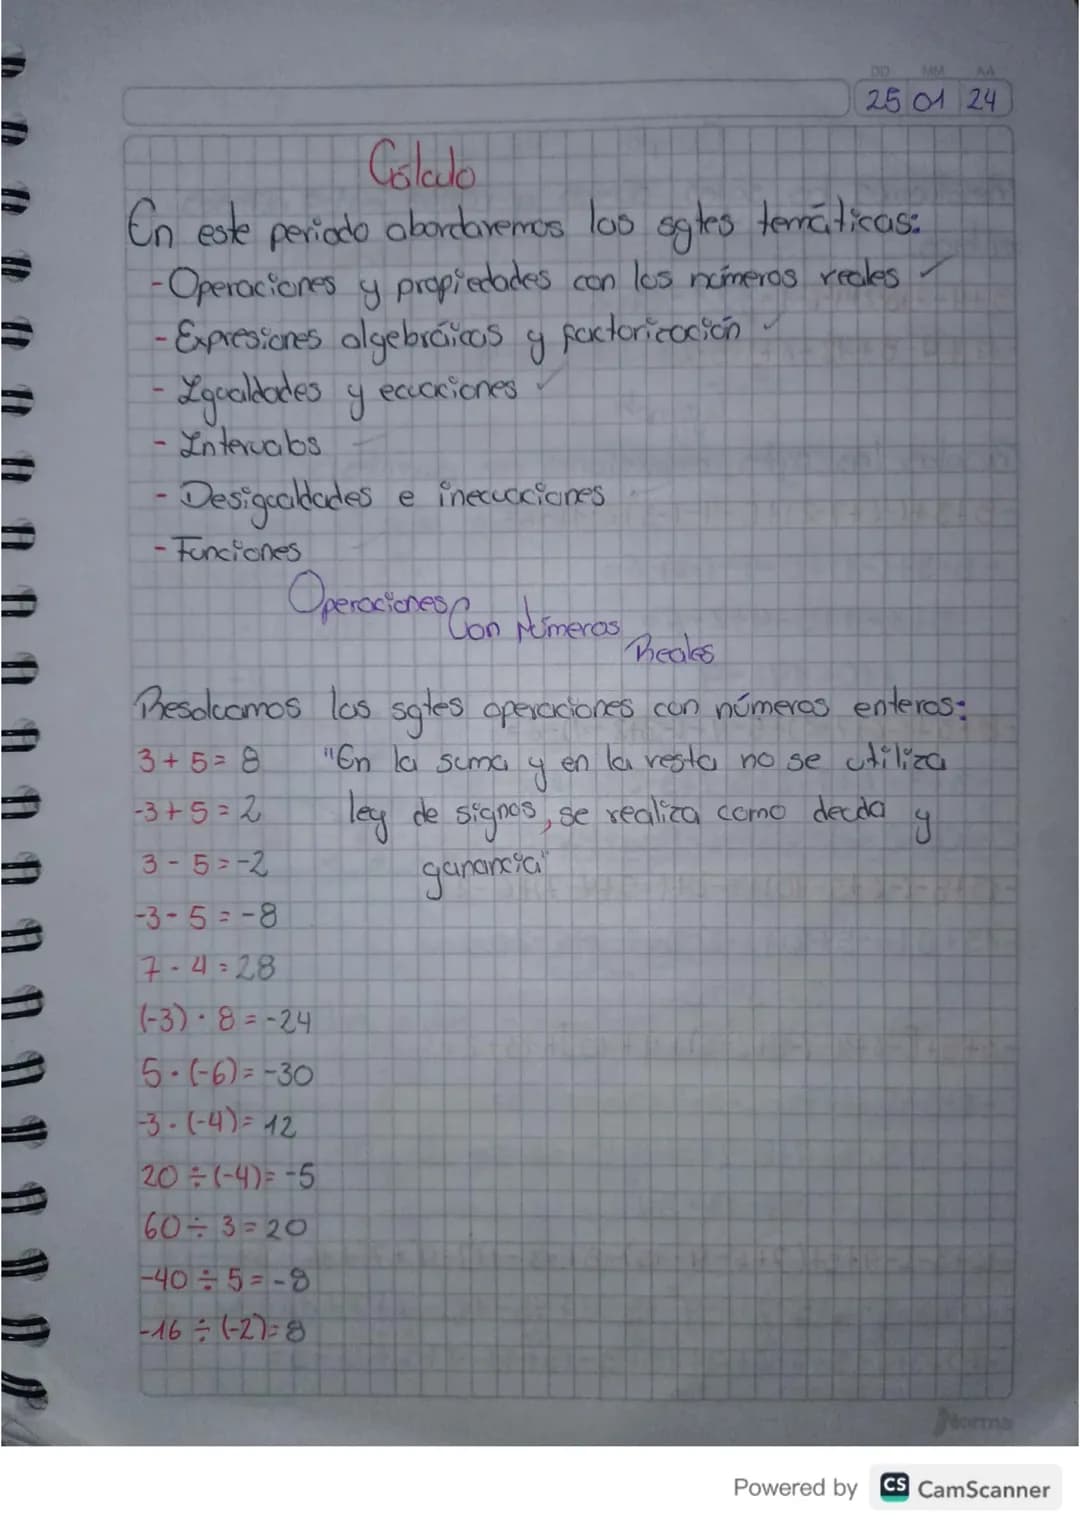 DD MM AA
25 01 24
Cálculo
En este periodo abordaremos las sgtes temáticas:
- Operaciones y propiedades con los números reales ✓
- Expresiones algebráicas y factorización ✓
- Igualdades y ecuaciones ✓
- Intervalos
- Desigualdades e inecuaciones
- Funciones
Operaciones Con Números Reales
Resolvamos las sgtes operaciones con números enteros:
3 + 5 = 8 "En la suma y en la resta no se utiliza
-3 + 5 = 2 ley de signos, se realiza como deuda y
3 - 5 = -2 ganancia"
-3 - 5 = -8
7 · 4 = 28
(-3) · 8 = -24
5 · (-6) = -30
-3 · (-4) = 12
20 ÷ (-4) = -5
60 ÷ 3 = 20
-40 ÷ 5 = -8
-16 ÷ (-2) = 8
Norma
Powered by CS CamScanner